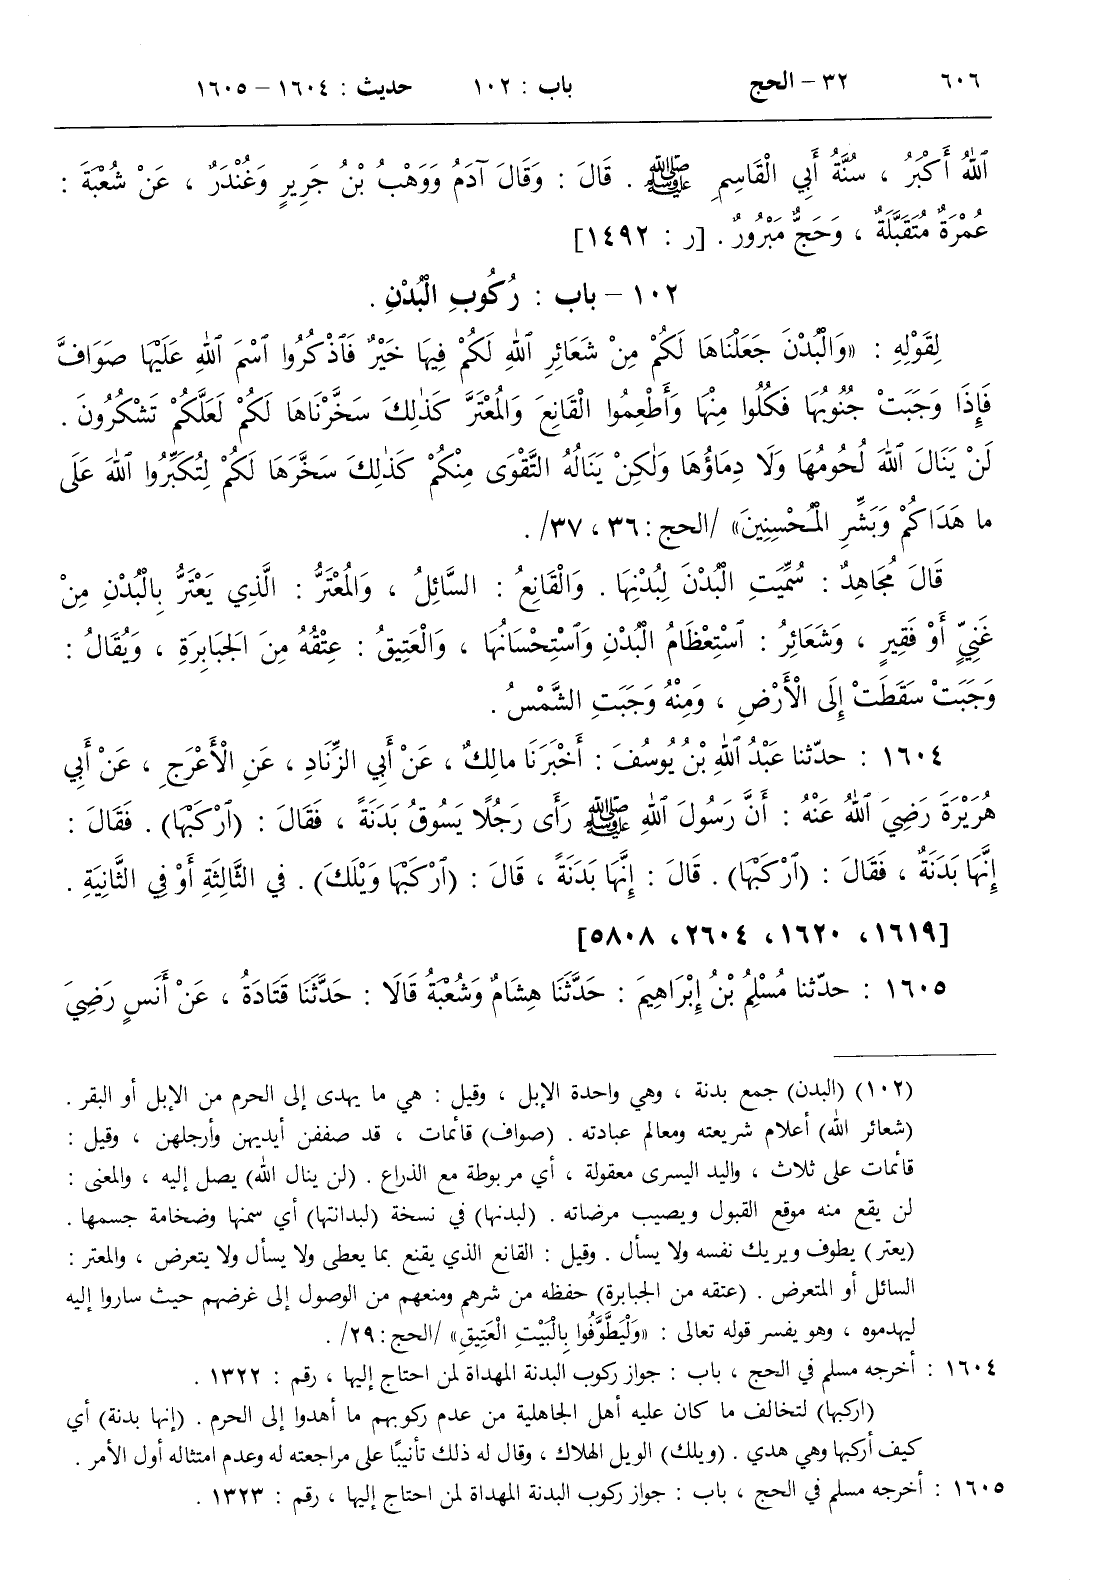 ٦٠٦ ٣٢ – الحج باب : ١٠٢ حديث : ١٦٠٤ – ١٦٠٥
ٱللهُ أَكْبَرُ ، سُنَّةُ أَبِي الْقَاسِمِ ﷺ . قَالَ : وَقَالَ آدَمُ وَوَهْبُ بْنُ جَرِيرٍ وَغُنْدَرٌ ، عَنْ شُعْبَةَ :
عُمْرَةٌ مُتَقَبَّلَةٌ ، وَحَجٌّ مَبْرُورٌ . [ر : ١٤٩٢]
١٠٢ – باب : رُكُوبِ الْبُدْنِ .
لِقَوْلِهِ : «وَالْبُدْنَ جَعَلْنَاهَا لَكُمْ مِنْ شَعَائِرِ ٱللهِ لَكُمْ فِيهَا خَيْرٌ فَٱذْكُرُوا ٱسْمَ ٱللهِ عَلَيْهَا صَوَافَّ
فَإِذَا وَجَبَتْ جُنُوبُهَا فَكُلُوا مِنْهَا وَأَطْعِمُوا الْقَانِعَ وَالْمُعْتَرَّ كَذٰلِكَ سَخَّرْنَاهَا لَكُمْ لَعَلَّكُمْ تَشْكُرُونَ .
لَنْ يَنَالَ ٱللهَ لُحُومُهَا وَلَا دِمَاؤُهَا وَلٰكِنْ يَنَالُهُ التَّقْوَى مِنْكُمْ كَذٰلِكَ سَخَّرَهَا لَكُمْ لِتُكَبِّرُوا ٱللهَ عَلَى
ما هَدَاكُمْ وَبَشِّرِ الْمُحْسِنِينَ» /الحج: ٣٦ ، ٣٧/ .
قَالَ مُجَاهِدٌ : سُمِّيَتِ الْبُدْنَ لِبُدْنِهَا . وَالْقَانِعُ : السَّائِلُ ، وَالْمُعْتَرُّ : الَّذِي يَعْتَرُّ بِالْبُدْنِ مِنْ
غَنِيٍّ أَوْ فَقِيرٍ ، وَشَعَائِرُ : ٱسْتِعْظَامُ الْبُدْنِ وَٱسْتِحْسَانُهَا ، وَالْعَتِيقُ : عِتْقُهُ مِنَ الجَبَابِرَةِ ، وَيُقَالُ :
وَجَبَتْ سَقَطَتْ إِلَى الْأَرْضِ ، وَمِنْهُ وَجَبَتِ الشَّمْسُ .
١٦٠٤ : حدّثنا عَبْدُ ٱللهِ بْنُ يُوسُفَ : أَخْبَرَنَا مالِكٌ ، عَنْ أَبِي الزِّنَادِ ، عَنِ الْأَعْرَجِ ، عَنْ أَبِي
هُرَيْرَةَ رَضِيَ ٱللهُ عَنْهُ : أَنَّ رَسُولَ ٱللهِ ﷺ رَأَى رَجُلًا يَسُوقُ بَدَنَةً ، فَقَالَ : (ٱرْكَبْهَا) . فَقَالَ :
إِنَّهَا بَدَنَةٌ ، فَقَالَ : (ٱرْكَبْهَا) . قَالَ : إِنَّهَا بَدَنَةٌ ، قَالَ : (ٱرْكَبْهَا وَيْلَكَ) . فِي الثَّالِثَةِ أَوْ فِي الثَّانِيَةِ .
[١٦١٩ ، ١٦٢٠ ، ٢٦٠٤ ، ٥٨٠٨]
١٦٠٥ : حدّثنا مُسْلِمُ بْنُ إِبْرَاهِيمَ : حَدَّثَنَا هِشَامٌ وَشُعْبَةُ قَالَا : حَدَّثَنَا قَتَادَةُ ، عَنْ أَنَسٍ رَضِيَ
(١٠٢) (البدن) جمع بدنة ، وهي واحدة الإبل ، وقيل : هي ما يهدى إلى الحرم من الإبل أو البقر .
(شعائر الله) أعلام شريعته ومعالم عبادته . (صواف) قائمات ، قد صففن أيديهن وأرجلهن ، وقيل :
قائمات على ثلاث ، واليد اليسرى معقولة ، أي مربوطة مع الذراع . (لن ينال الله) يصل إليه ، والمعنى :
لن يقع منه موقع القبول ويصيب مرضاته . (لبدنها) في نسخة (لبدانتها) أي سمنها وضخامة جسمها .
(يعتر) يطوف ويريك نفسه ولا يسأل . وقيل : القانع الذي يقنع بما يعطى ولا يسأل ولا يتعرض ، والمعتر :
السائل أو المتعرض . (عتقه من الجبابرة) حفظه من شرهم ومنعهم من الوصول إلى غرضهم حيث ساروا إليه
ليهدموه ، وهو يفسر قوله تعالى : «وَلْيَطَّوَّفُوا بِالْبَيْتِ الْعَتِيقِ» /الحج: ٢٩/ .
١٦٠٤ : أخرجه مسلم في الحج ، باب : جواز ركوب البدنة المهداة لمن احتاج إليها ، رقم : ١٣٢٢ .
(اركبها) لتخالف ما كان عليه أهل الجاهلية من عدم ركوبهم ما أهدوا إلى الحرم . (إنها بدنة) أي
كيف أركبها وهي هدي . (ويلك) الويل الهلاك ، وقال له ذلك تأنيبًا على مراجعته له وعدم امتثاله أول الأمر .
١٦٠٥ : أخرجه مسلم في الحج ، باب : جواز ركوب البدنة المهداة لمن احتاج إليها ، رقم : ١٣٢٣ .